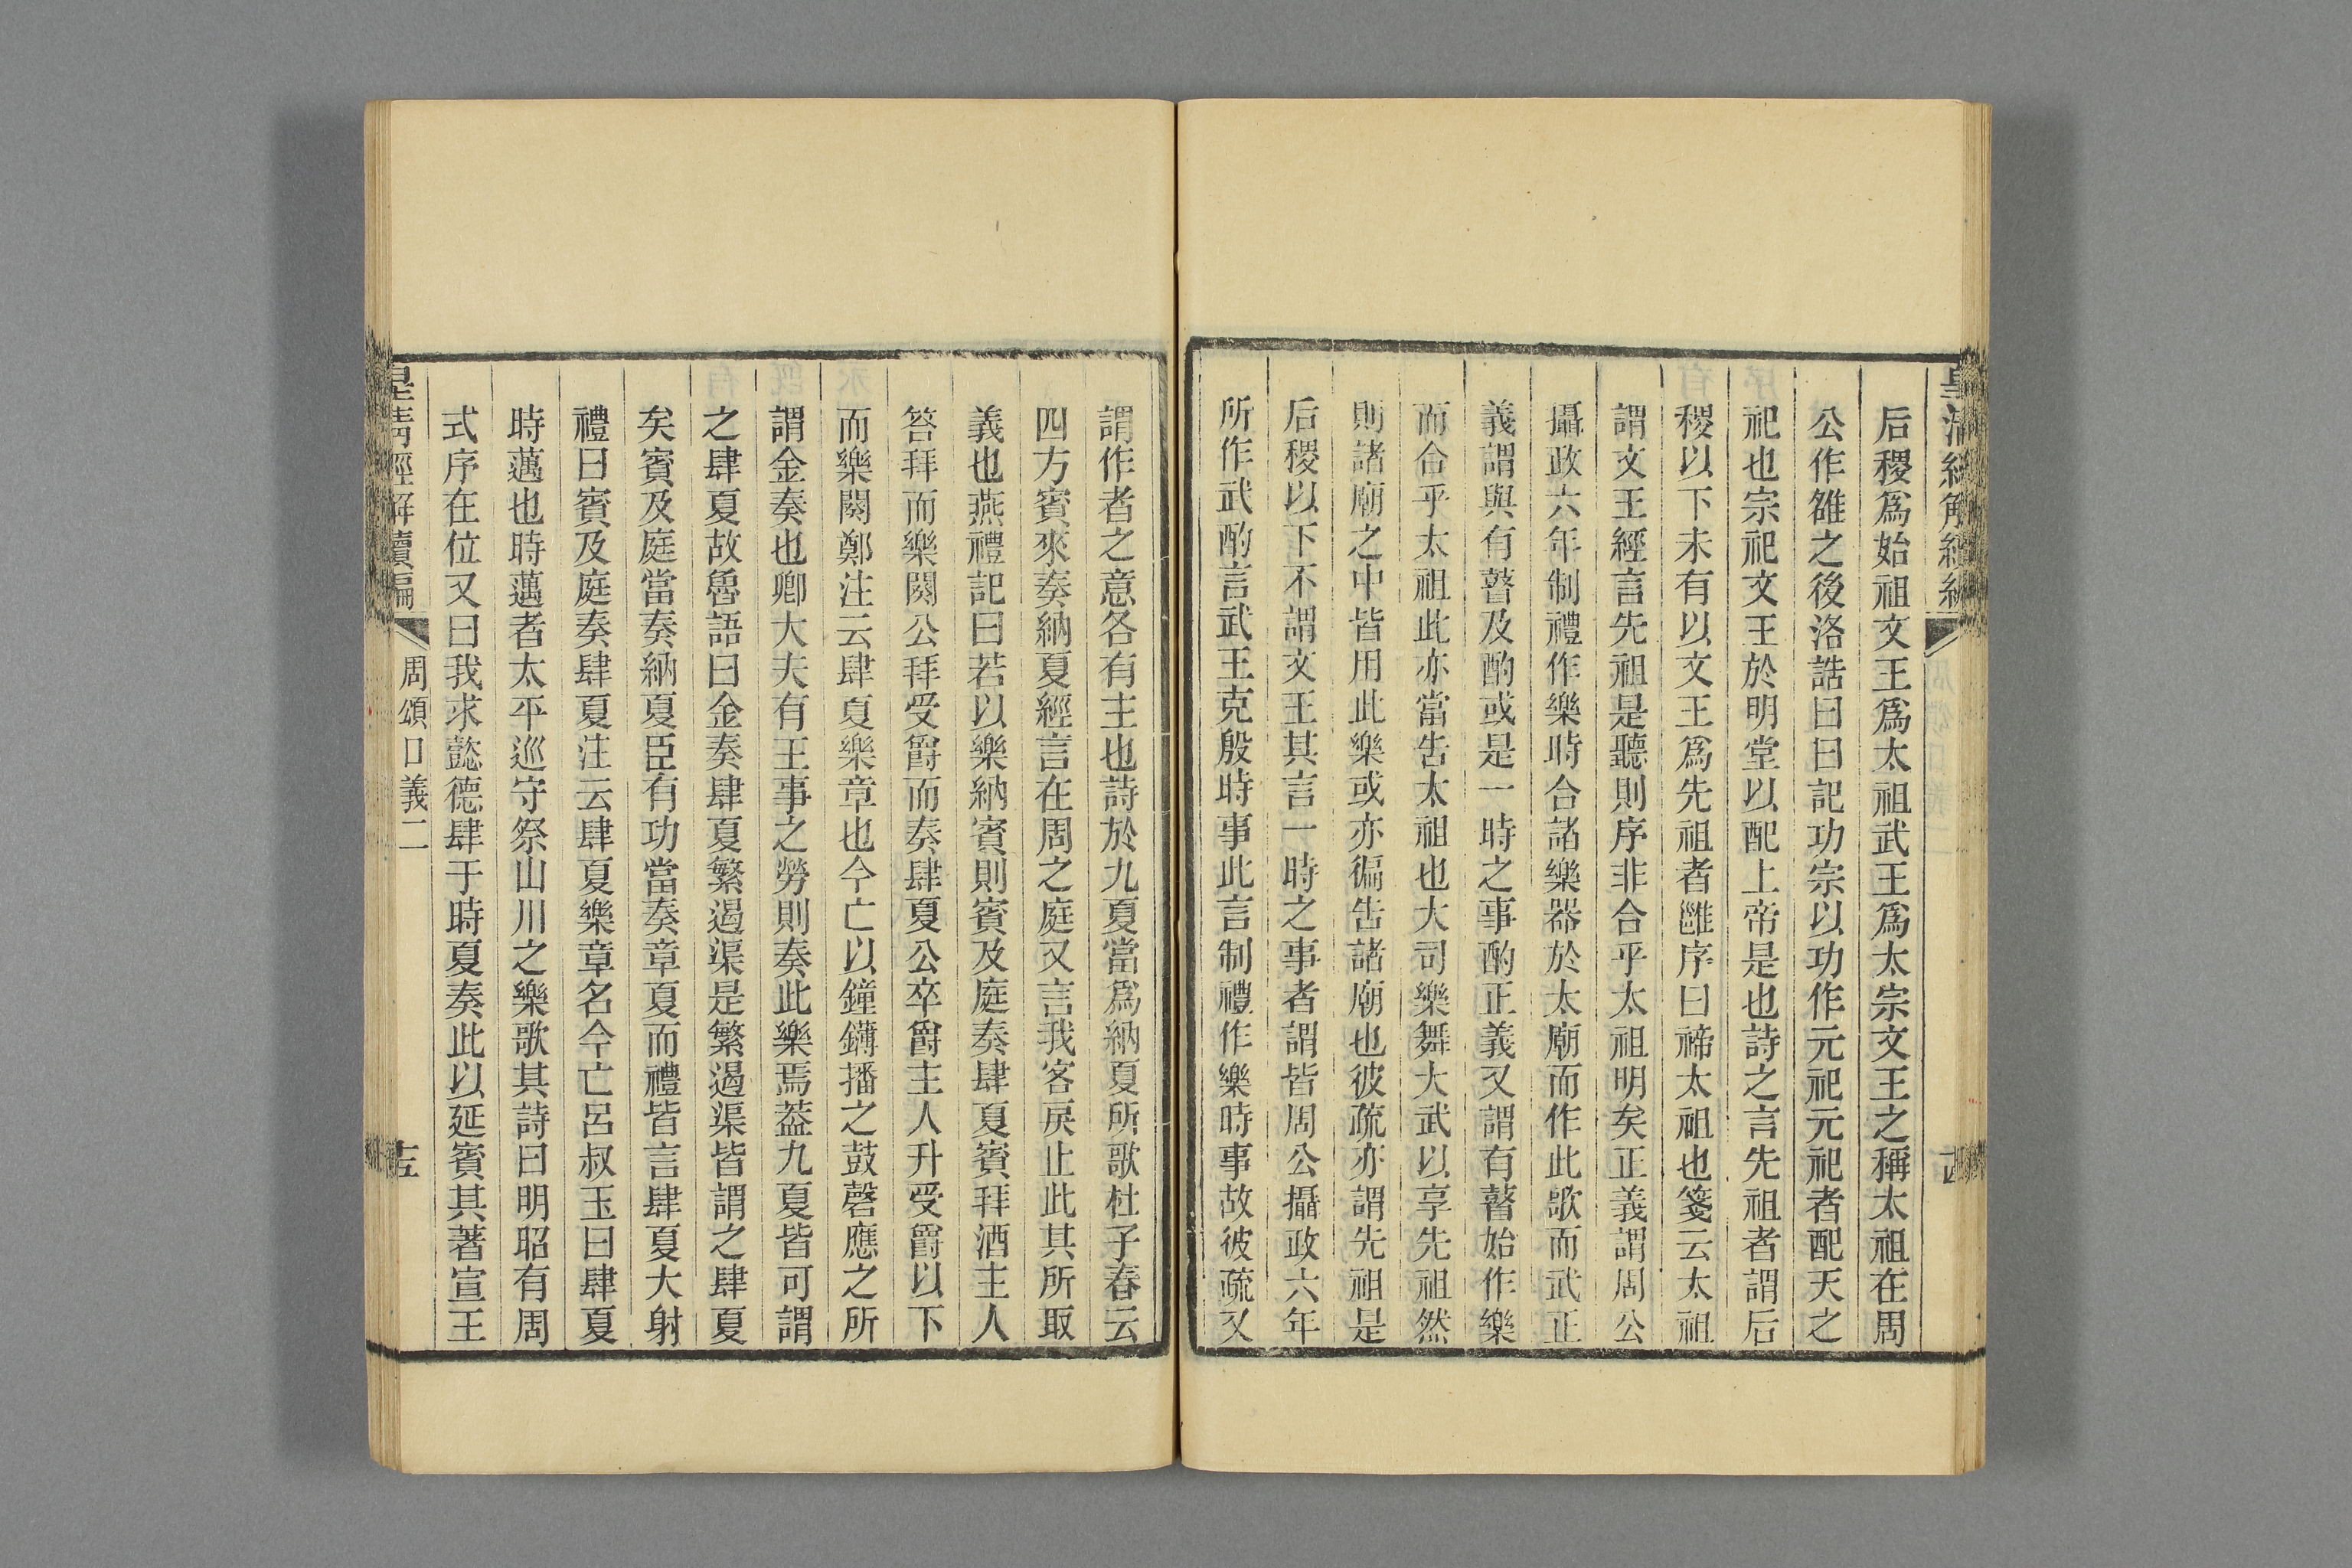 后稷爲始祖文王爲太祖武王爲太宗文王之稱太祖在周
公作雒之後洛誥曰曰記功宗以功作元祀元祀者配天之
祀也宗祀文王於明堂以配上帝是也詩之言先祖者謂后
稷以下未有以文王爲先祖者雝序曰禘太祖也箋云太祖
謂文王經言先祖是聽則序非合乎太祖明矣正義謂周公
攝政六年制禮作樂時合諸樂器於太廟而作此歌而武正
義謂與有瞽及酌或是一時之事酌正義又謂有瞽始作樂
而合乎太祖此亦當告太祖也大司樂舞大武以享先祖然
則諸廟之中皆用此樂或亦徧告諸廟也彼疏亦謂先祖是
后稷以下不謂文王其言一時之事者謂皆周公攝政六年
所作武酌言武王克殷時事此言制禮作樂時事故彼疏又
謂作者之意各有主也詩於九夏當爲納夏所歌杜子春云
四方賓來奏納夏經言在周之庭又言我客戾止此其所取
義也燕禮記曰若以樂納賓則賓及庭奏肆夏賓拜酒主人
答拜而樂闋公拜受爵而奏肆夏公卒爵主人升受爵以下
而樂闋鄭注云肆夏樂章也今亡以鐘鑮播之鼓磬應之所
謂金奏也卿大夫有王事之勞則奏此樂焉葢九夏皆可謂
之肆夏故魯語曰金奏肆夏繁遏渠是繁遏渠皆謂之肆夏
矣賓及庭當奏納夏臣有功當奏章夏而禮皆言肆夏大射
禮曰賓及庭奏肆夏注云肆夏樂章名今亡呂叔玉曰肆夏
時邁也時邁者太平巡守祭山川之樂歌其詩曰明昭有周
式序在位又曰我求懿德肆于時夏奏此以延賓其著宣王
皇清經解續編
周頌口義二
十五